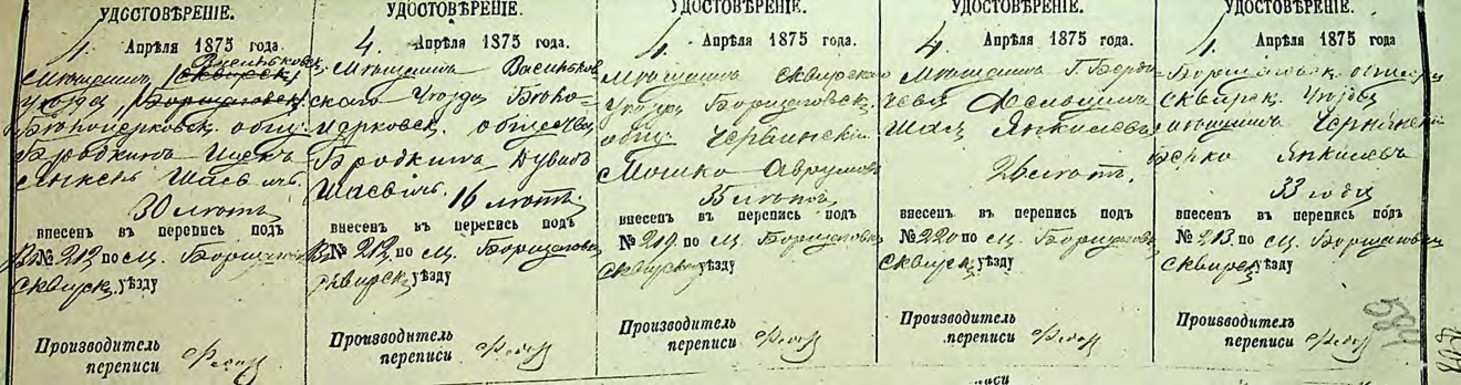 УДОСТОВѢРЕНІЕ.
4. Апрѣля 1875 года.
Мѣщанинъ Васильковск.
Уѣзда
Бѣлоцерковск. общ.
Бродкинъ Ицекъ
Янкель Шаев
30 лѣтъ
внесенъ въ перепись подъ
В. № 212 по м. Борщаговк
Сквирск. уѣзду
Производитель
переписи
УДОСТОВѢРЕНІЕ.
4. Апрѣля 1875 года.
Мѣщанинъ Васильков
скаго Уѣзда Бѣло=
церковск. общества
Бродкинъ Дувидъ
Шаев 16 лѣтъ.
внесенъ въ перепись подъ
В. № 212 по м. Борщаговк
Сквирск. уѣзду
Производитель
переписи
УДОСТОВѢРЕНІЕ.
4. Апрѣля 1875 года.
Мѣщанинъ Сквирскаго
Уѣзда Борщаговск.
общ.
Мошко Аврумов
35 лѣтъ
внесенъ въ перепись подъ
№ 219. по м. Борщаговк
Сквирск уѣзду
Производитель
переписи
УДОСТОВѢРЕНІЕ.
4. Апрѣля 1875 года.
Мѣщанинъ Г. Берди=
чева
Шая Янкелевъ
26 лѣтъ.
внесенъ въ перепись подъ
№ 220 по м. Борщаговк
Сквирск. уѣзду
Производитель
переписи
УДОСТОВѢРЕНІЕ.
4. Апрѣля 1875 года
Борщаговск. общества
Сквирск. Уѣзда
мѣщанинъ
Берко Янкелевъ
33 года
внесенъ въ перепись подъ
№ 213. по м. Борщаговк
Сквирск. уѣзду
Производитель
переписи